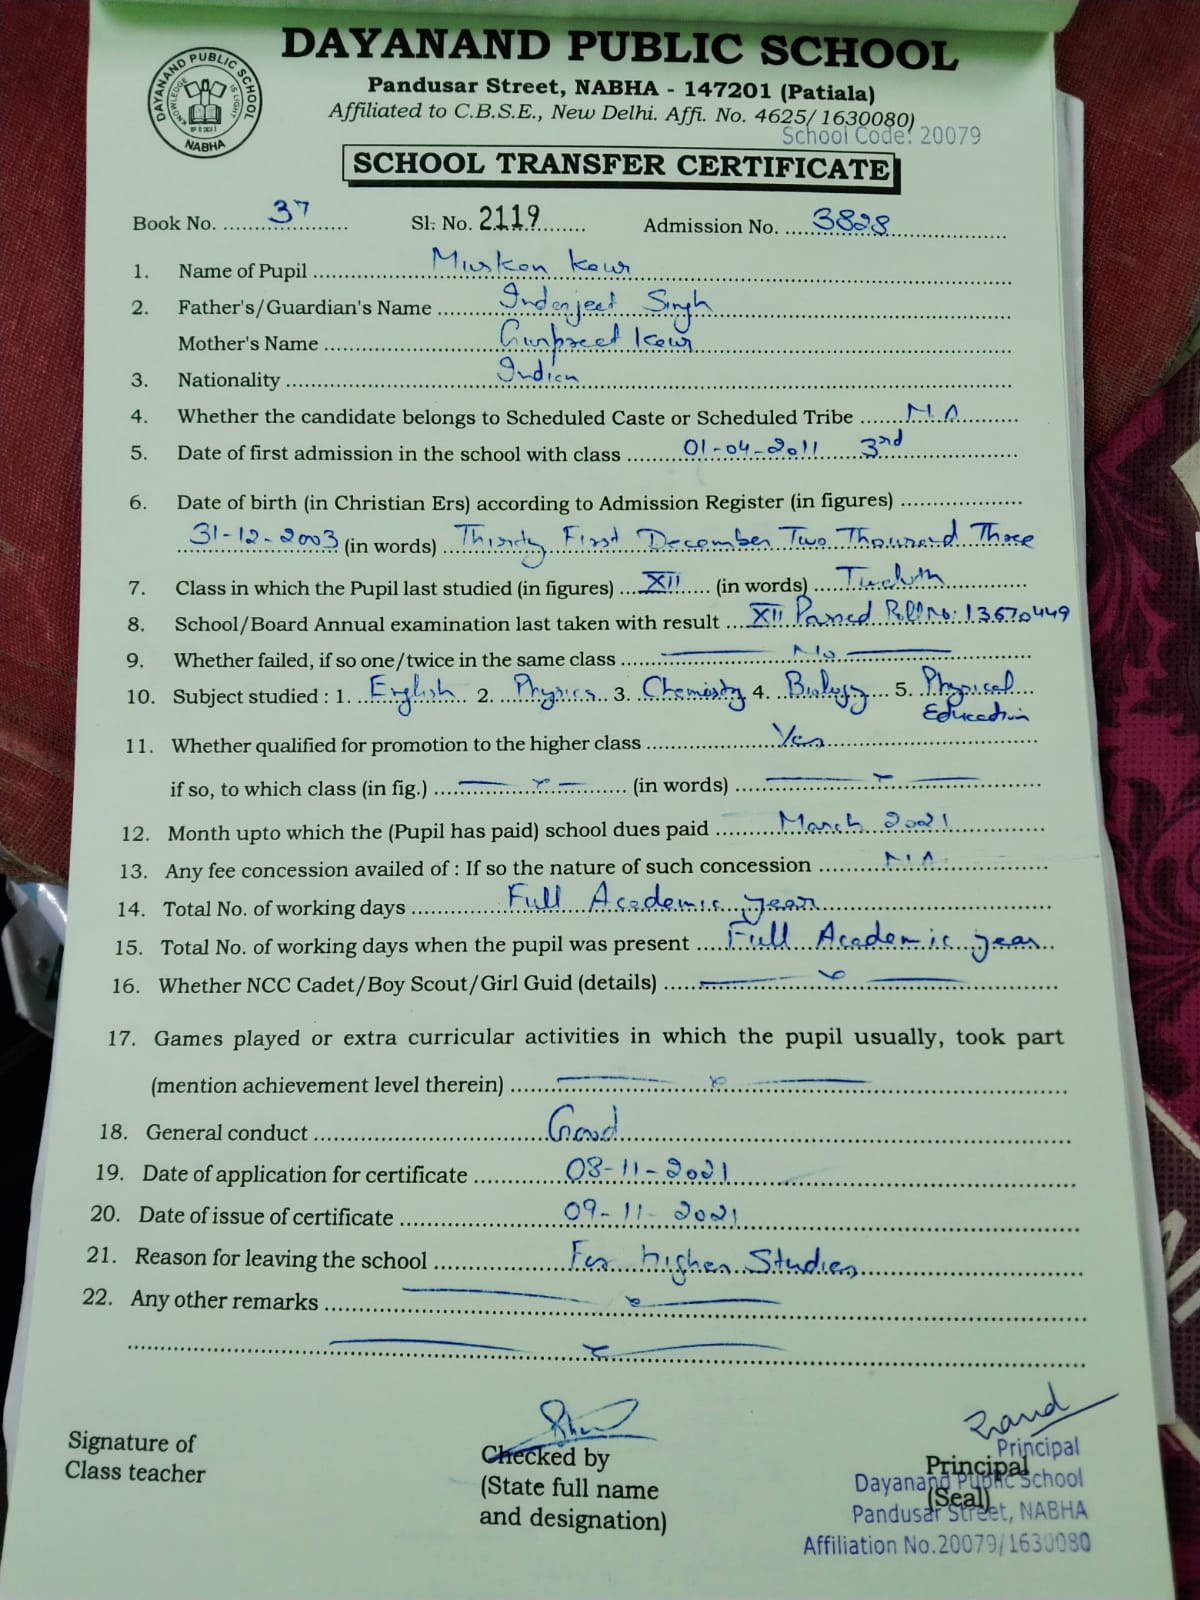 DAYANAND PUBLIC SCHOOL
Pandusar Street, NABHA - 147201 (Patiala)
Affiliated to C.B.S.E., New Delhi. Affi. No. 4625/1630080)
School Code: 20079
DAYANAND PUBLIC SCHOOL
KNOWLEDGE IS LIGHT
NABHA
SCHOOL TRANSFER CERTIFICATE
Book No. 37 Sl. No. 2119 Admission No. 3828
1. Name of Pupil Muskan Kaur
2. Father's/Guardian's Name Inderjeet Singh
Mother's Name Gurpreet Kaur
3. Nationality Indian
4. Whether the candidate belongs to Scheduled Caste or Scheduled Tribe N.A.
5. Date of first admission in the school with class 01-04-2011 3rd
6. Date of birth (in Christian Ers) according to Admission Register (in figures)
31-12-2003 (in words) Thirty First December Two Thousand Three
7. Class in which the Pupil last studied (in figures) XII (in words) Twelvth
8. School/Board Annual examination last taken with result XII Passed Roll No: 13670449
9. Whether failed, if so one/twice in the same class No
10. Subject studied : 1. English 2. Physics 3. Chemistry 4. Biology 5. Physical
Education
11. Whether qualified for promotion to the higher class Yes
if so, to which class (in fig.) (in words)
12. Month upto which the (Pupil has paid) school dues paid March 2021
13. Any fee concession availed of : If so the nature of such concession N.A.
14. Total No. of working days Full Academic year
15. Total No. of working days when the pupil was present Full Academic year
16. Whether NCC Cadet/Boy Scout/Girl Guid (details)
17. Games played or extra curricular activities in which the pupil usually, took part
(mention achievement level therein)
18. General conduct Good
19. Date of application for certificate 08-11-2021
20. Date of issue of certificate 09-11-2021
21. Reason for leaving the school For higher Studies
22. Any other remarks
Signature of
Class teacher
Checked by
(State full name
and designation)
Principal
(Seal)
Principal
Dayanand Public School
Pandusar Street, NABHA
Affiliation No.20079/1630080